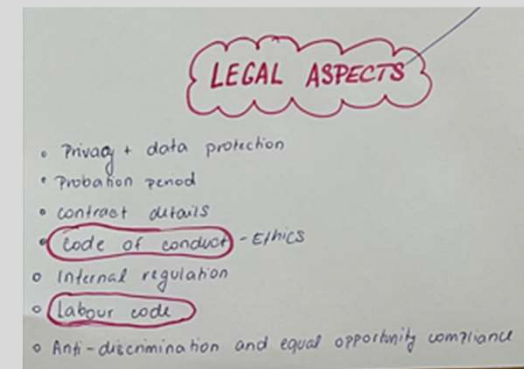 LEGAL ASPECTS
• Privacy + data protection
• Probation period
• contract details
• Code of conduct - Ethics
• Internal regulation
• Labour code
• Anti-discrimination and equal opportunity compliance